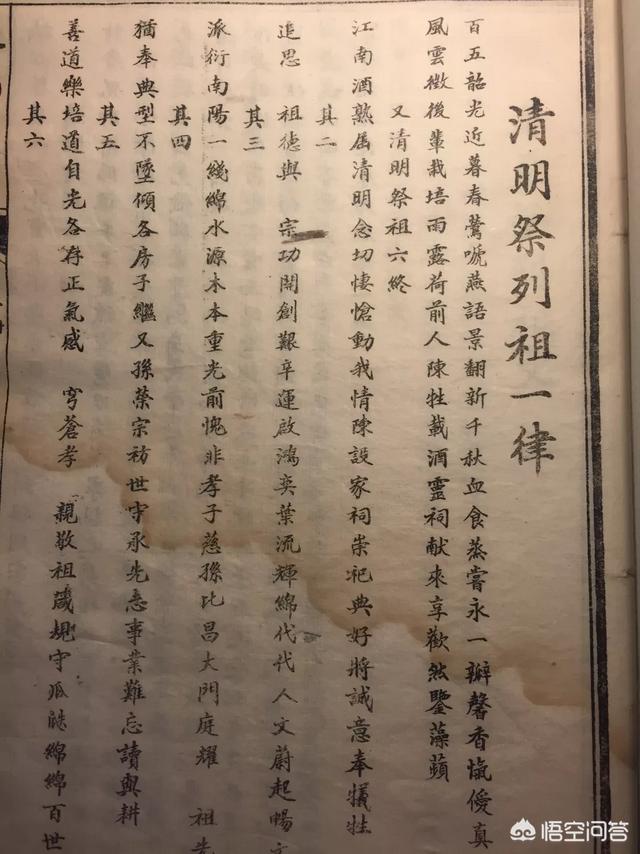 清明祭列祖一律
百五韶光近暮春鶯啼燕語景翻新千秋血食蒸嘗永一瓣馨香愾僾真
風雲徵後輩栽培雨露荷前人陳牲載酒靈祠献來享歡然鑒藻蘋
又清明祭祖六終
江南酒熟屆清明念切悽愴動我情陳設家祠崇祀典好將誠意奉犧牲
其二
追思 祖德與 宗功開創艱辛運啟鴻奕葉流輝綿代代人文蔚起暢
其三
派衍南陽一綫綿水源木本重光前愧非孝子慈孫比昌大門庭耀 祖先
其四
猶奉典型不墜傾各房子繼又孫榮宗祊世守承先志事業難忘讀與耕
其五
善道樂培道自光各存正氣感 穹蒼孝 親敬祖箴規守瓜瓞綿綿百世
其六
悟空问答